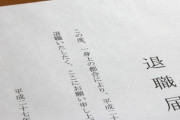 退職届
この度、一身上の都合により、
退職いたしたく、ここにお願い申し上
平成二十七
平成二